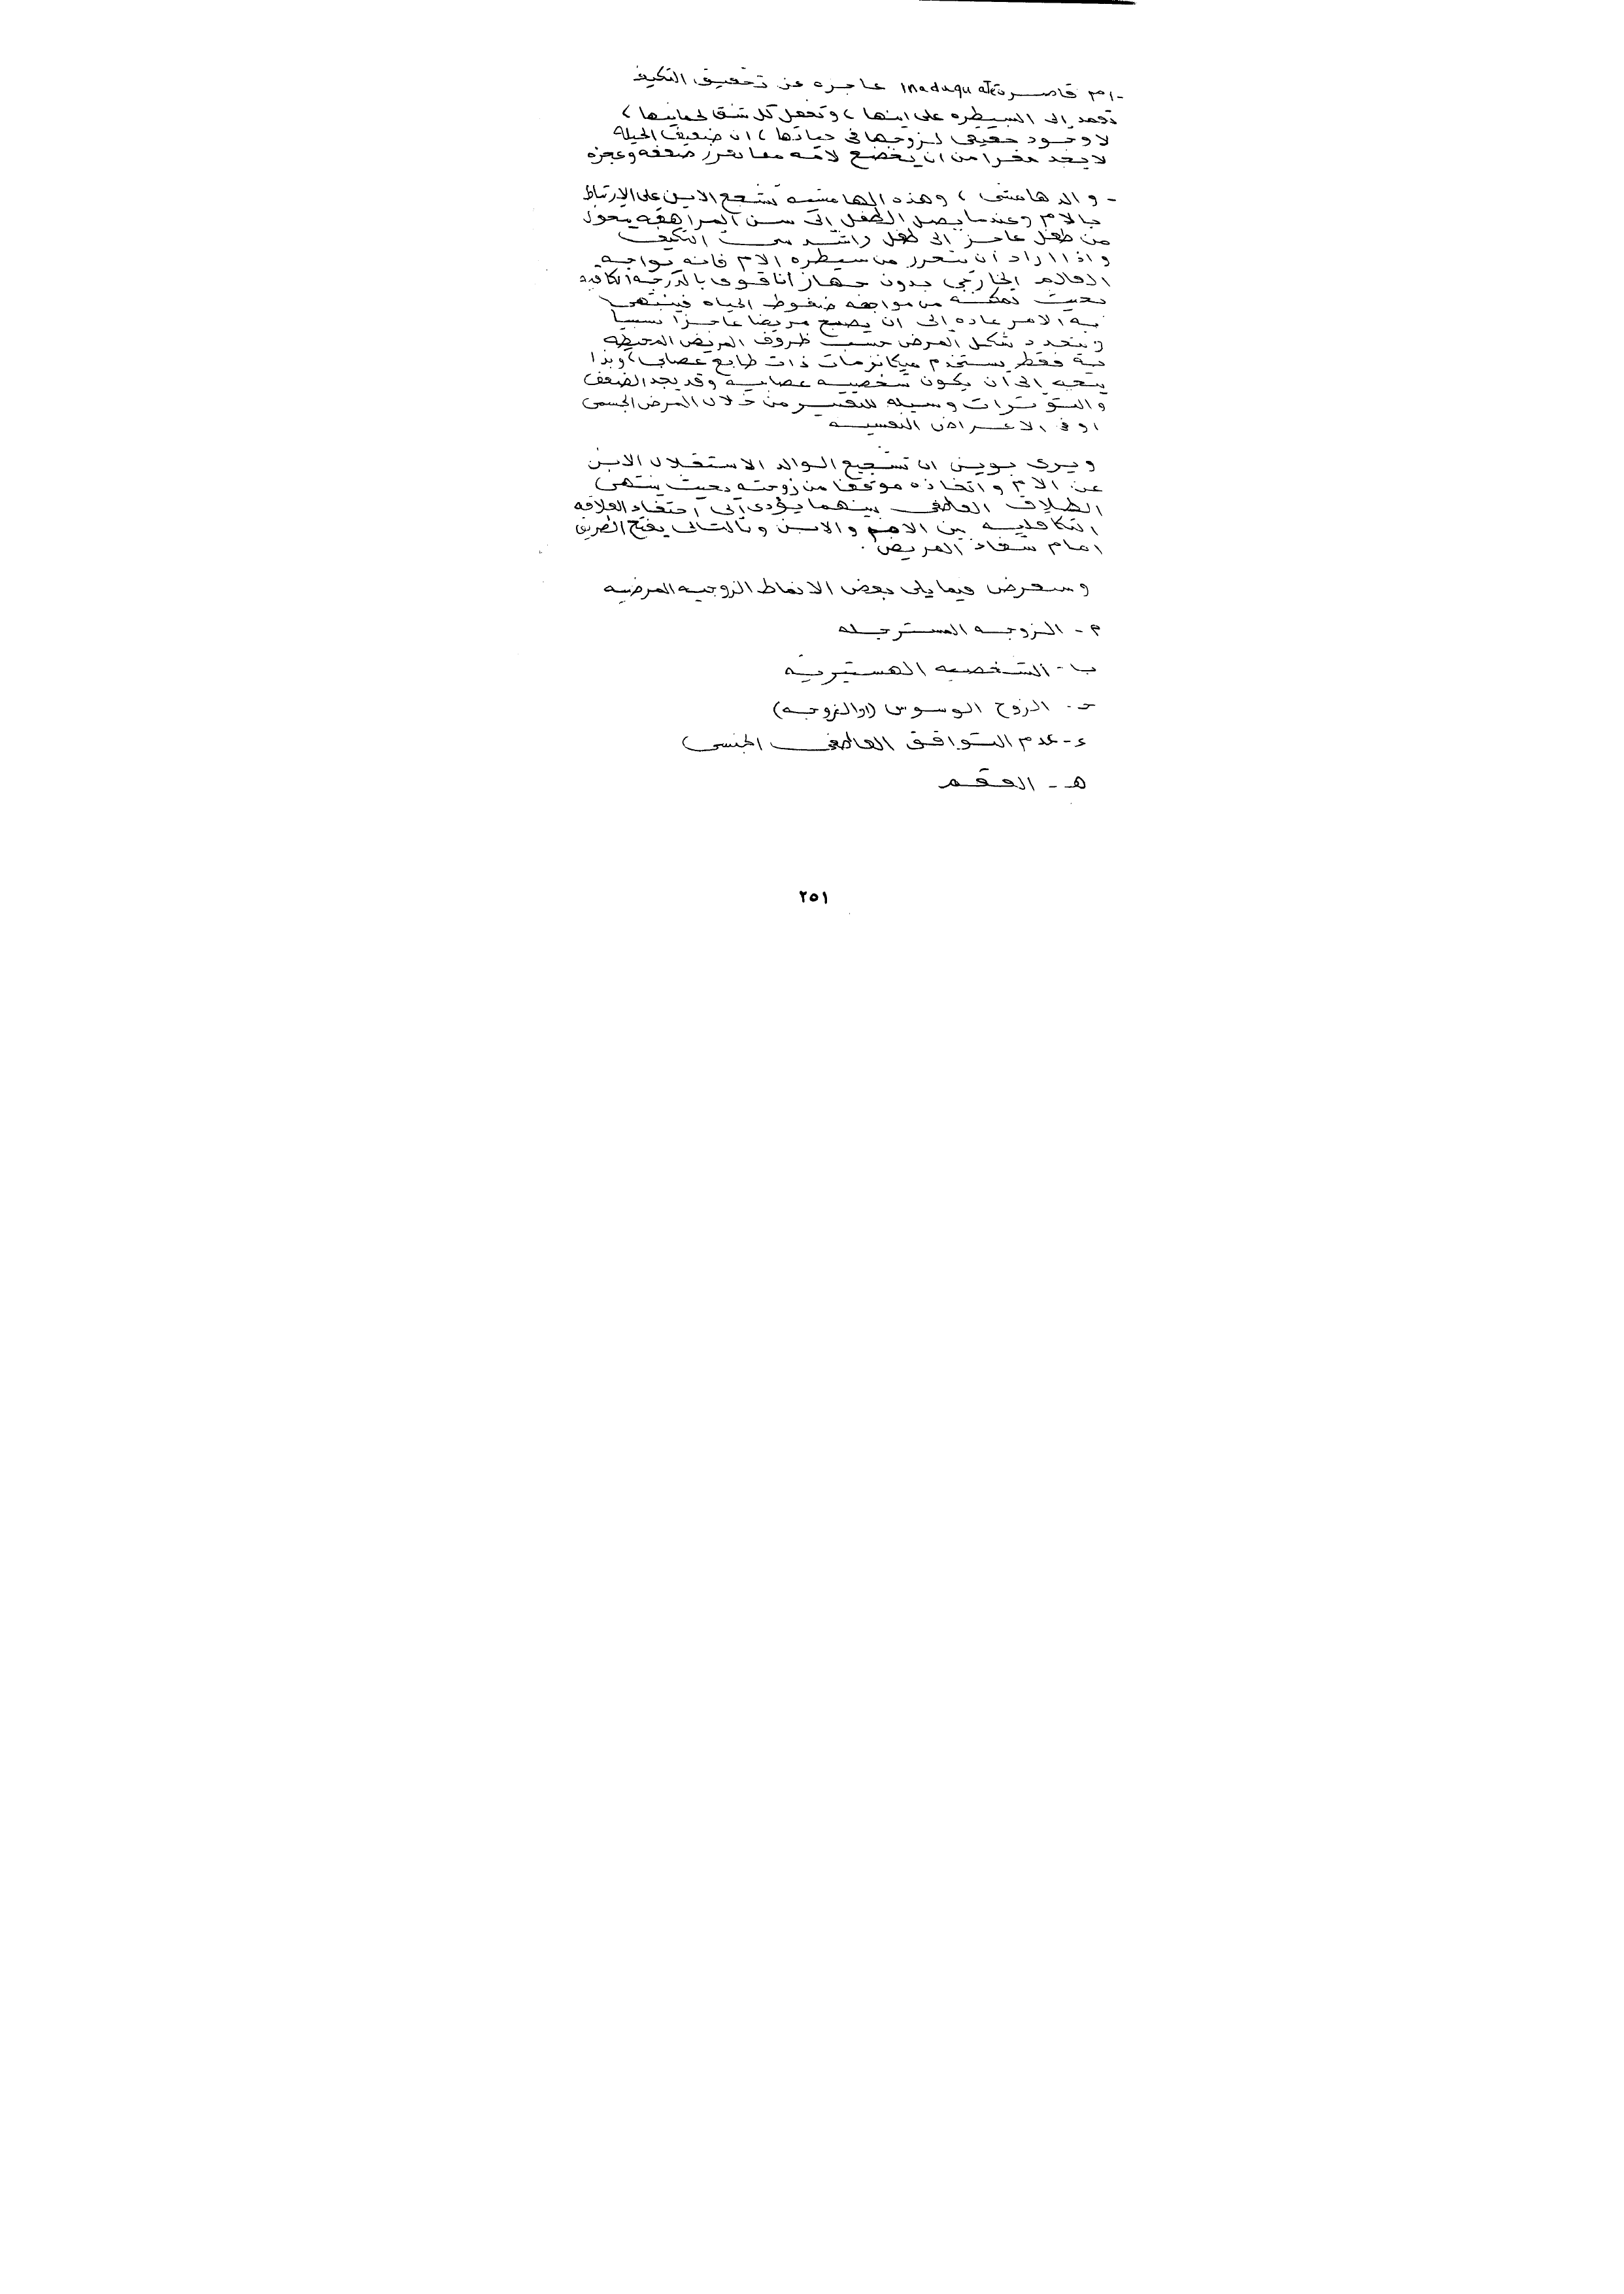 - ام قاصرة Inadaquate عاجزه عن تحقيق التكيف
تعمد إلى السيطره على ابنها ، وتفعل كل شئ لحمايتها ،
لا وجود حقيقى لزوجها فى حياتها ، ان ضعيف الحيلة
لا يجد مفرا من ان يخضع لامه مما يقرر ضعفه وعجزه
- والد هامشى ، وهذه الهامشيه تشجع الابن على الارتباط
بالام وعندما يصل الطفل إلى سن المراهقه يتحول
من طفل عاجز الى طفل راشد سئ التكيف
واذا اراد ان يتحرر من سيطره الام فانه يواجه
العالم الخارجى بدون جهاز أنا قوى بالدرجة الكافيه
بحيث تمكنه من مواجهه ضغوط الحياه فينتهى
به الامر عاده الى ان يصبح مريضا عاجزا نسبيا
ويتحدد شكل المرض حسب ظروف المريض المحيطه
به فقط يستخدم ميكانزمات ذات طابع عصابى ، وبذا
يتجه الى ان يكون شخصيه عصابية وقد يجد الضعف
والتوترات وسيله للتعبير من خلال المرض الجسمى
او فى الاعراض النفسيه
ويرى بوين ان تشجيع الوالد الاستقلال الابن
عن الام واتخاذه موقفا من زوجته بحيث ينتهى
الطلاق العاطفى بينهما يؤدى إلى اختفاء العلاقه
التكافليه بين الام والابن وبالتالى يفتح الطريق
امام شفاء المريض .
وسنعرض فيما يلى بعض الانماط الزوجيه المرضيه
م - الزوجه المسترجله
ب - الشخصيه الهستيريه
حـ - الزوج الوسوس (او الزوجه)
ء - عدم التوافق العاطفى الجنسى
هـ - العقم
٢٥١